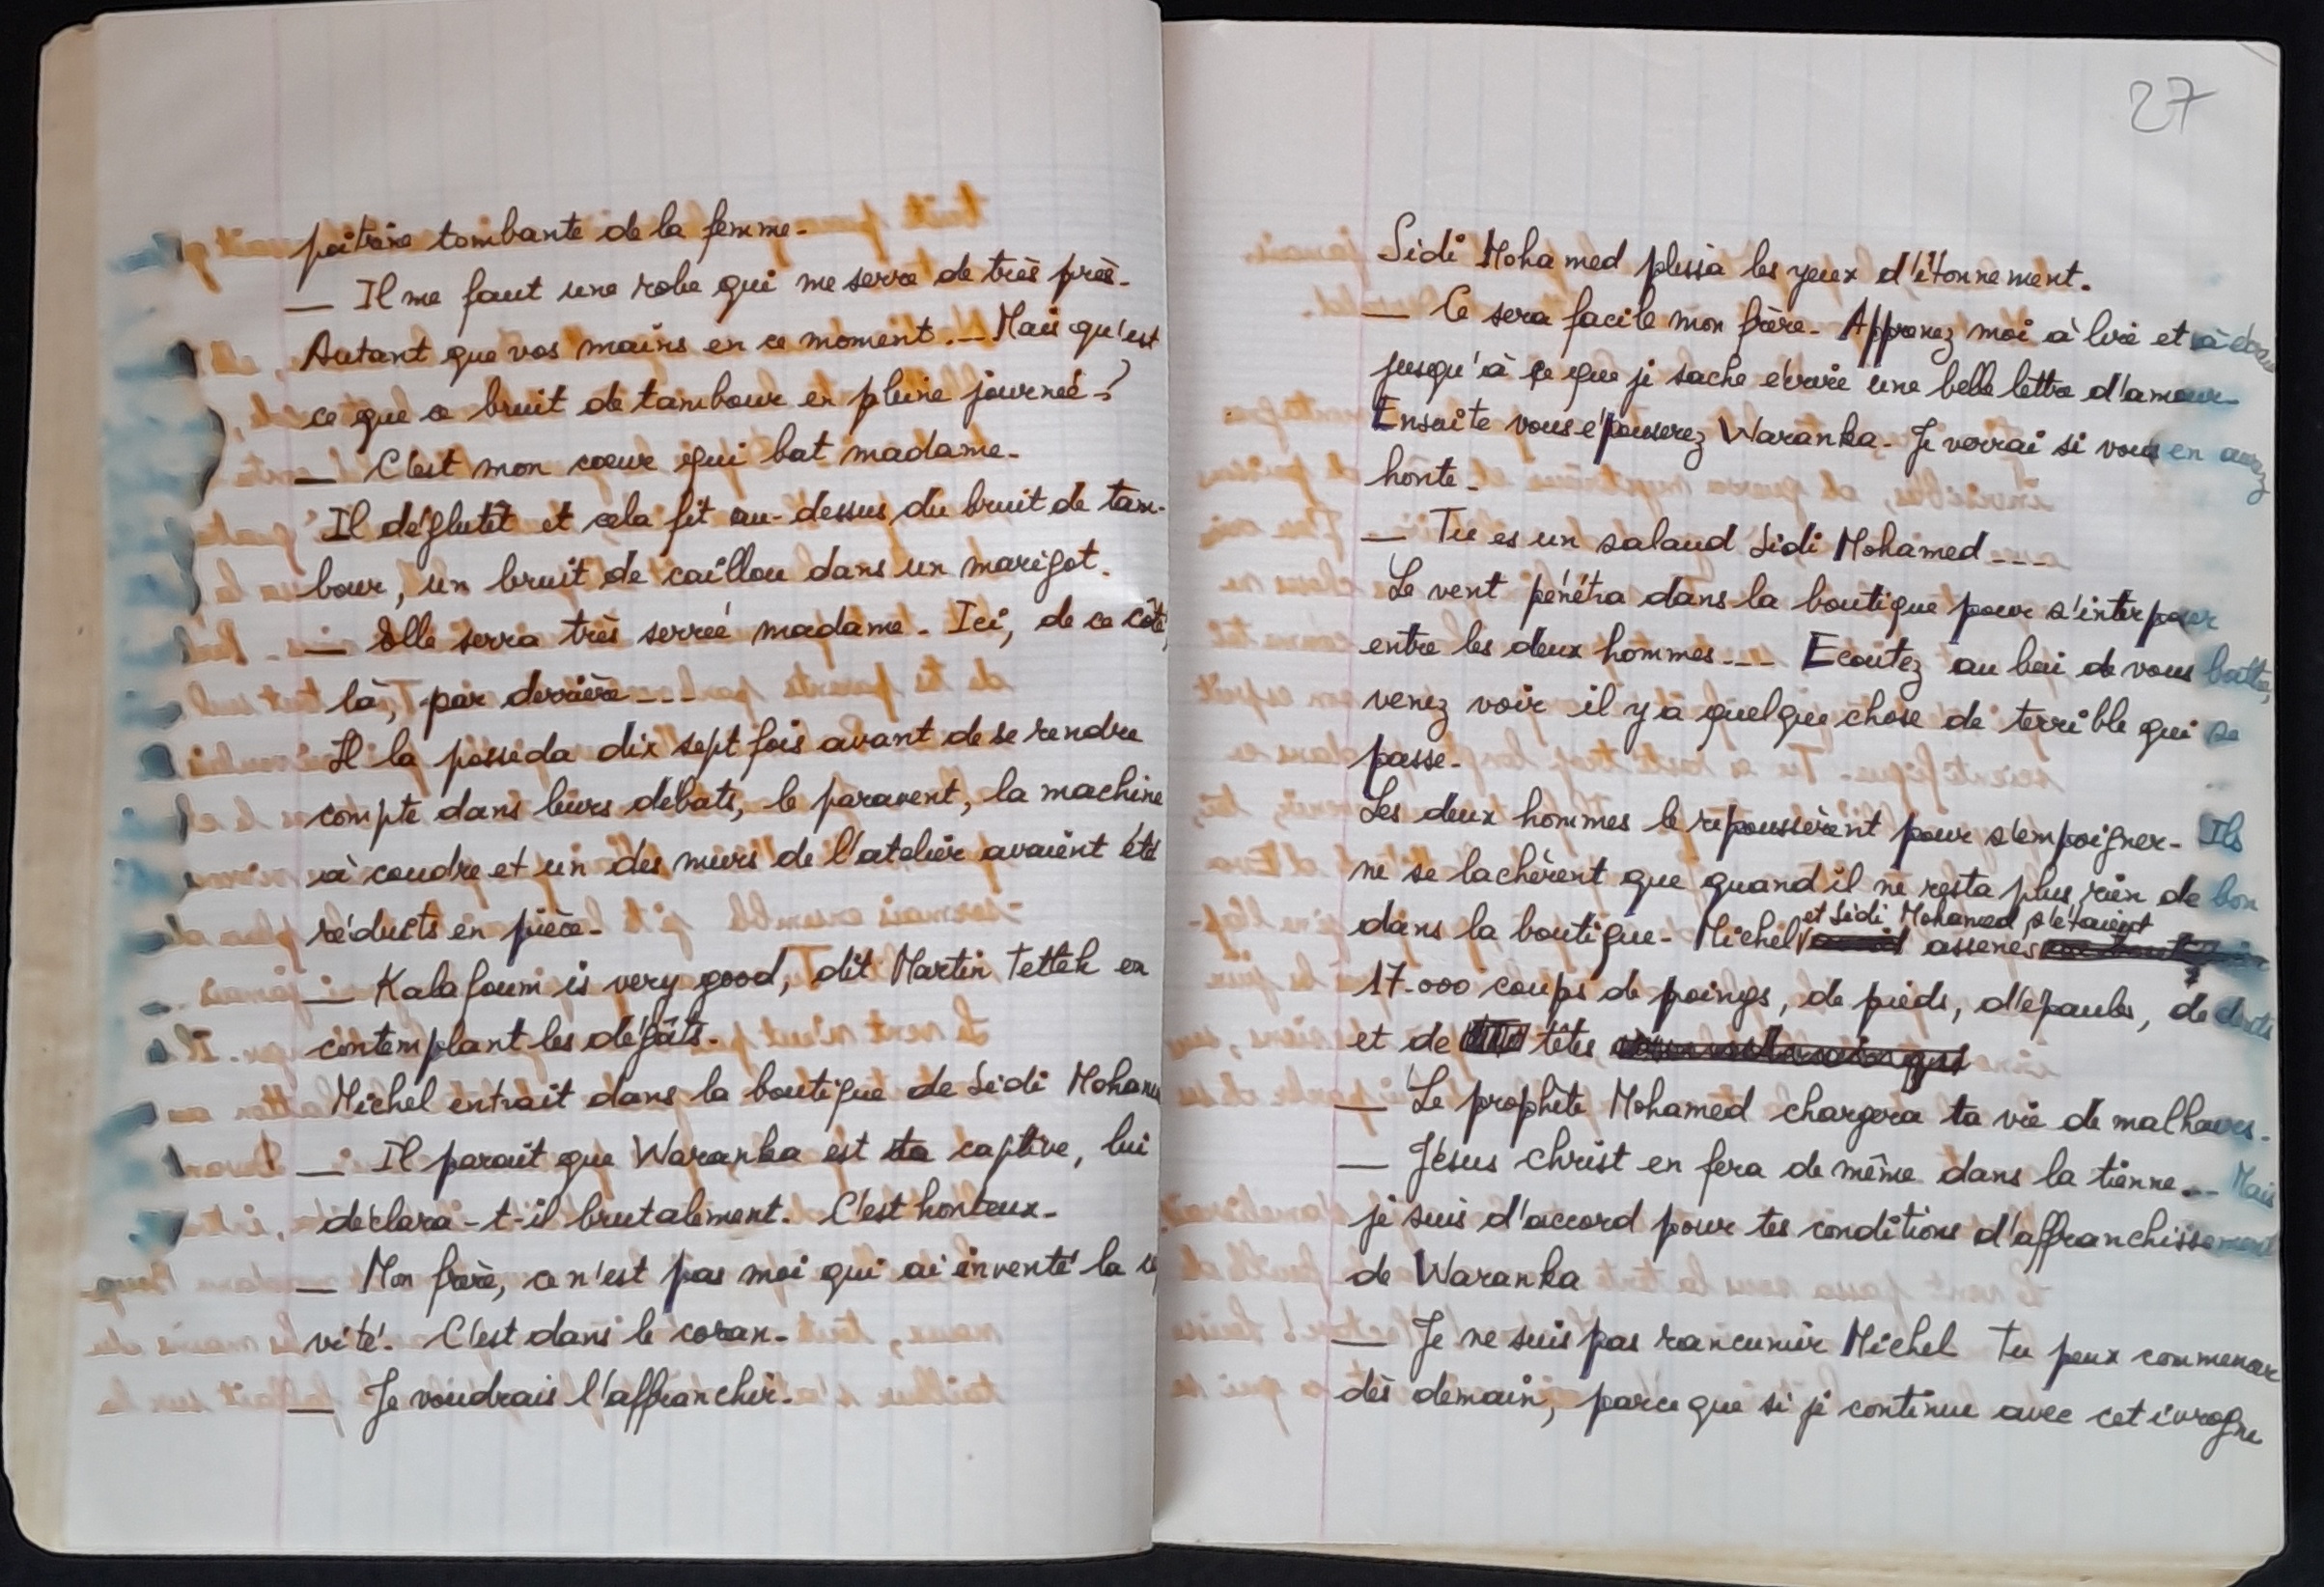 poitrine tombante de la femme.
— Il me faut une robe qui me serre de très près.
Autant que vos mains en ce moment. _ Mais qu'est
ce que ce bruit de tambour en pleine journée ?
— C'est mon cœur qui bat madame.
Il déglutît et cela fit au-dessus du bruit de tam-
bour, un bruit de caillou dans un marigot.
— Elle serra très serrée madame. Ici, de ce côté,
là, par derrière ---
Il la posseda dix sept fois avant de se rendre
compte dans leurs débats, le paravent, la machine
à coudre et un des murs de l'atelier avaient été
réduits en pièce.
— Kalafoum is very good, dit Martin Tettek en
contemplant les dégâts.
Michel entrait dans la boutique de Sidi Mohame
— Il parait que Waranka est ta captive, lui
déclara-t-il brutalement. C'est honteux.
— Mon frère, ce n'est pas moi qui ai inventé la
vité. C'est dans le coran.
— Je voudrais l'affranchir.
27
Sidi Mohamed plissa les yeux d'étonnement.
— Ce sera facile mon frère. Apprenez moi à lire et à
jusqu'à ce que je sache écrire une belle lettre d'amour
Ensuite vous épouserez Waranka. Je verrai si vous en aurez
honte.
— Tu es un salaud Sidi Mohamed ---
Le vent pénétra dans la boutique pour s'interposer
entre les deux hommes --- Ecoutez au lieu de vous battre,
venez voir il y a quelque chose de terrible qui se
passe.
Les deux hommes le repoussèrent pour s'empoigner. Ils
ne se lachèrent que quand il ne resta plus rien de bon
dans la boutique. Michel et Sidi Mohamed s'étaient assenés
17.000 coups de poings, de pieds, d'épaules, de dents
et de têtes
— Le prophète Mohamed chargera ta vie de malheurs.
— Jésus Christ en fera de même dans la tienne --- Mais
je suis d'accord pour tes conditions d'affranchissement
de Waranka
— Je ne suis pas rancunier Michel Tu peux commencer
dès demain, parce que si je continue avec cet ivrogne